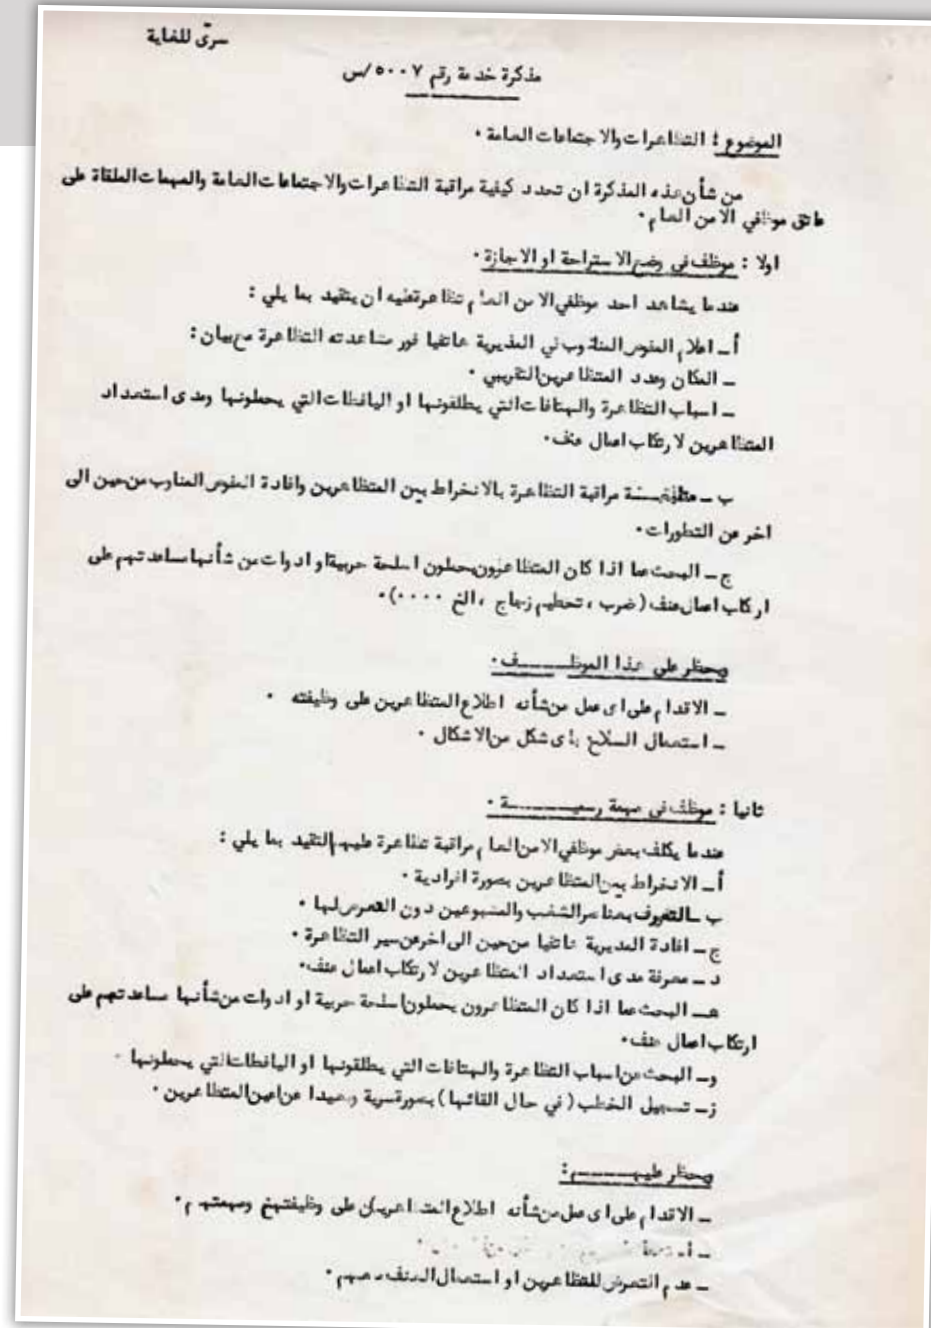 سرّى للغاية
مذكرة خدمة رقم ٥٠٠٧/س
الموضوع : التظاعرات والاجتماعات العامة ٠
من شأن عذه المذكرة ان تحدد كيفية مراقبة التظاعرات والاجتماعات العامة والمهمات الملقاة على
عاتق موظفي الامن العام ٠
اولا : موظف في وضع الاستراحة او الاجازة ٠
عندما يشاعد احد موظفي الامن العام تظاعرة عليه ان يتقيد بما يلي :
أ ــ اعلام المفوض المناوب في المديرية عاتفيا فور مشاعدته التظاعرة مع بيان :
ــ المكان وعدد المتظاعرين التقريبي ٠
ــ اسباب التظاعرة والهتافات التي يطلقونها او اليافطات التي يحملونها ومدى استعداد
المتظاعرين لارتكاب اعمال عنف ٠
ب ــ مراقبة التظاعرة بالانخراط بين المتظاعرين وافادة المفوض المناوب من حين الى
اخر عن التطورات ٠
ج ــ البحث عما اذا كان المتظاعرون يحملون اسلحة حربية او ادوات من شأنها مساعدتهم على
اركاب اعمال عنف ( ضرب ، تحطيم زجاج ، الخ ٠٠٠٠ ) ٠
ويحظر على عذا الموظـــــــف ٠
ــ الاقدام على اى عمل من شأنه اطلاع المتظاعرين على وظيفته ٠
ــ استعمال السلاح بأى شكل من الاشكال ٠
ثانيا : موظف في مهمة رسميـــــــــة ٠
عندما يكلف بعض موظفي الامن العام مراقبة تظاعرة عليهم التقيد بما يلي :
أ ــ الانخراط بين المتظاعرين بصورة افرادية ٠
ب ــ التعرف بعناصر الشغب والمشبوعين دون التعرض لها ٠
ج ــ افادة المديرية عاتفيا من حين الى اخر عن سير التظاعرة ٠
د ــ معرفة مدى استعداد المتظاعرين لارتكاب اعمال عنف ٠
هـ ــ البحث عما اذا كان المتظاعرون يحملون اسلحة حربية او ادوات من شأنها مساعدتهم على
ارتكاب اعمال عنف ٠
و ــ البحث عن اسباب التظاعرة والهتافات التي يطلقونها او اليافطات التي يحملونها ٠
ز ــ تسجيل الخطب ( في حال القائها ) بصورة سرية وبعيدا عن اعين المتظاعرين ٠
ويحظر عليهـــــــــم :
ــ الاقدام على اى عمل من شأنه اطلاع المتظاعرين على وظيفتهم ومهمتهم ٠
ــ عدم التعرض للمتظاعرين او استعمال العنف معهم ٠